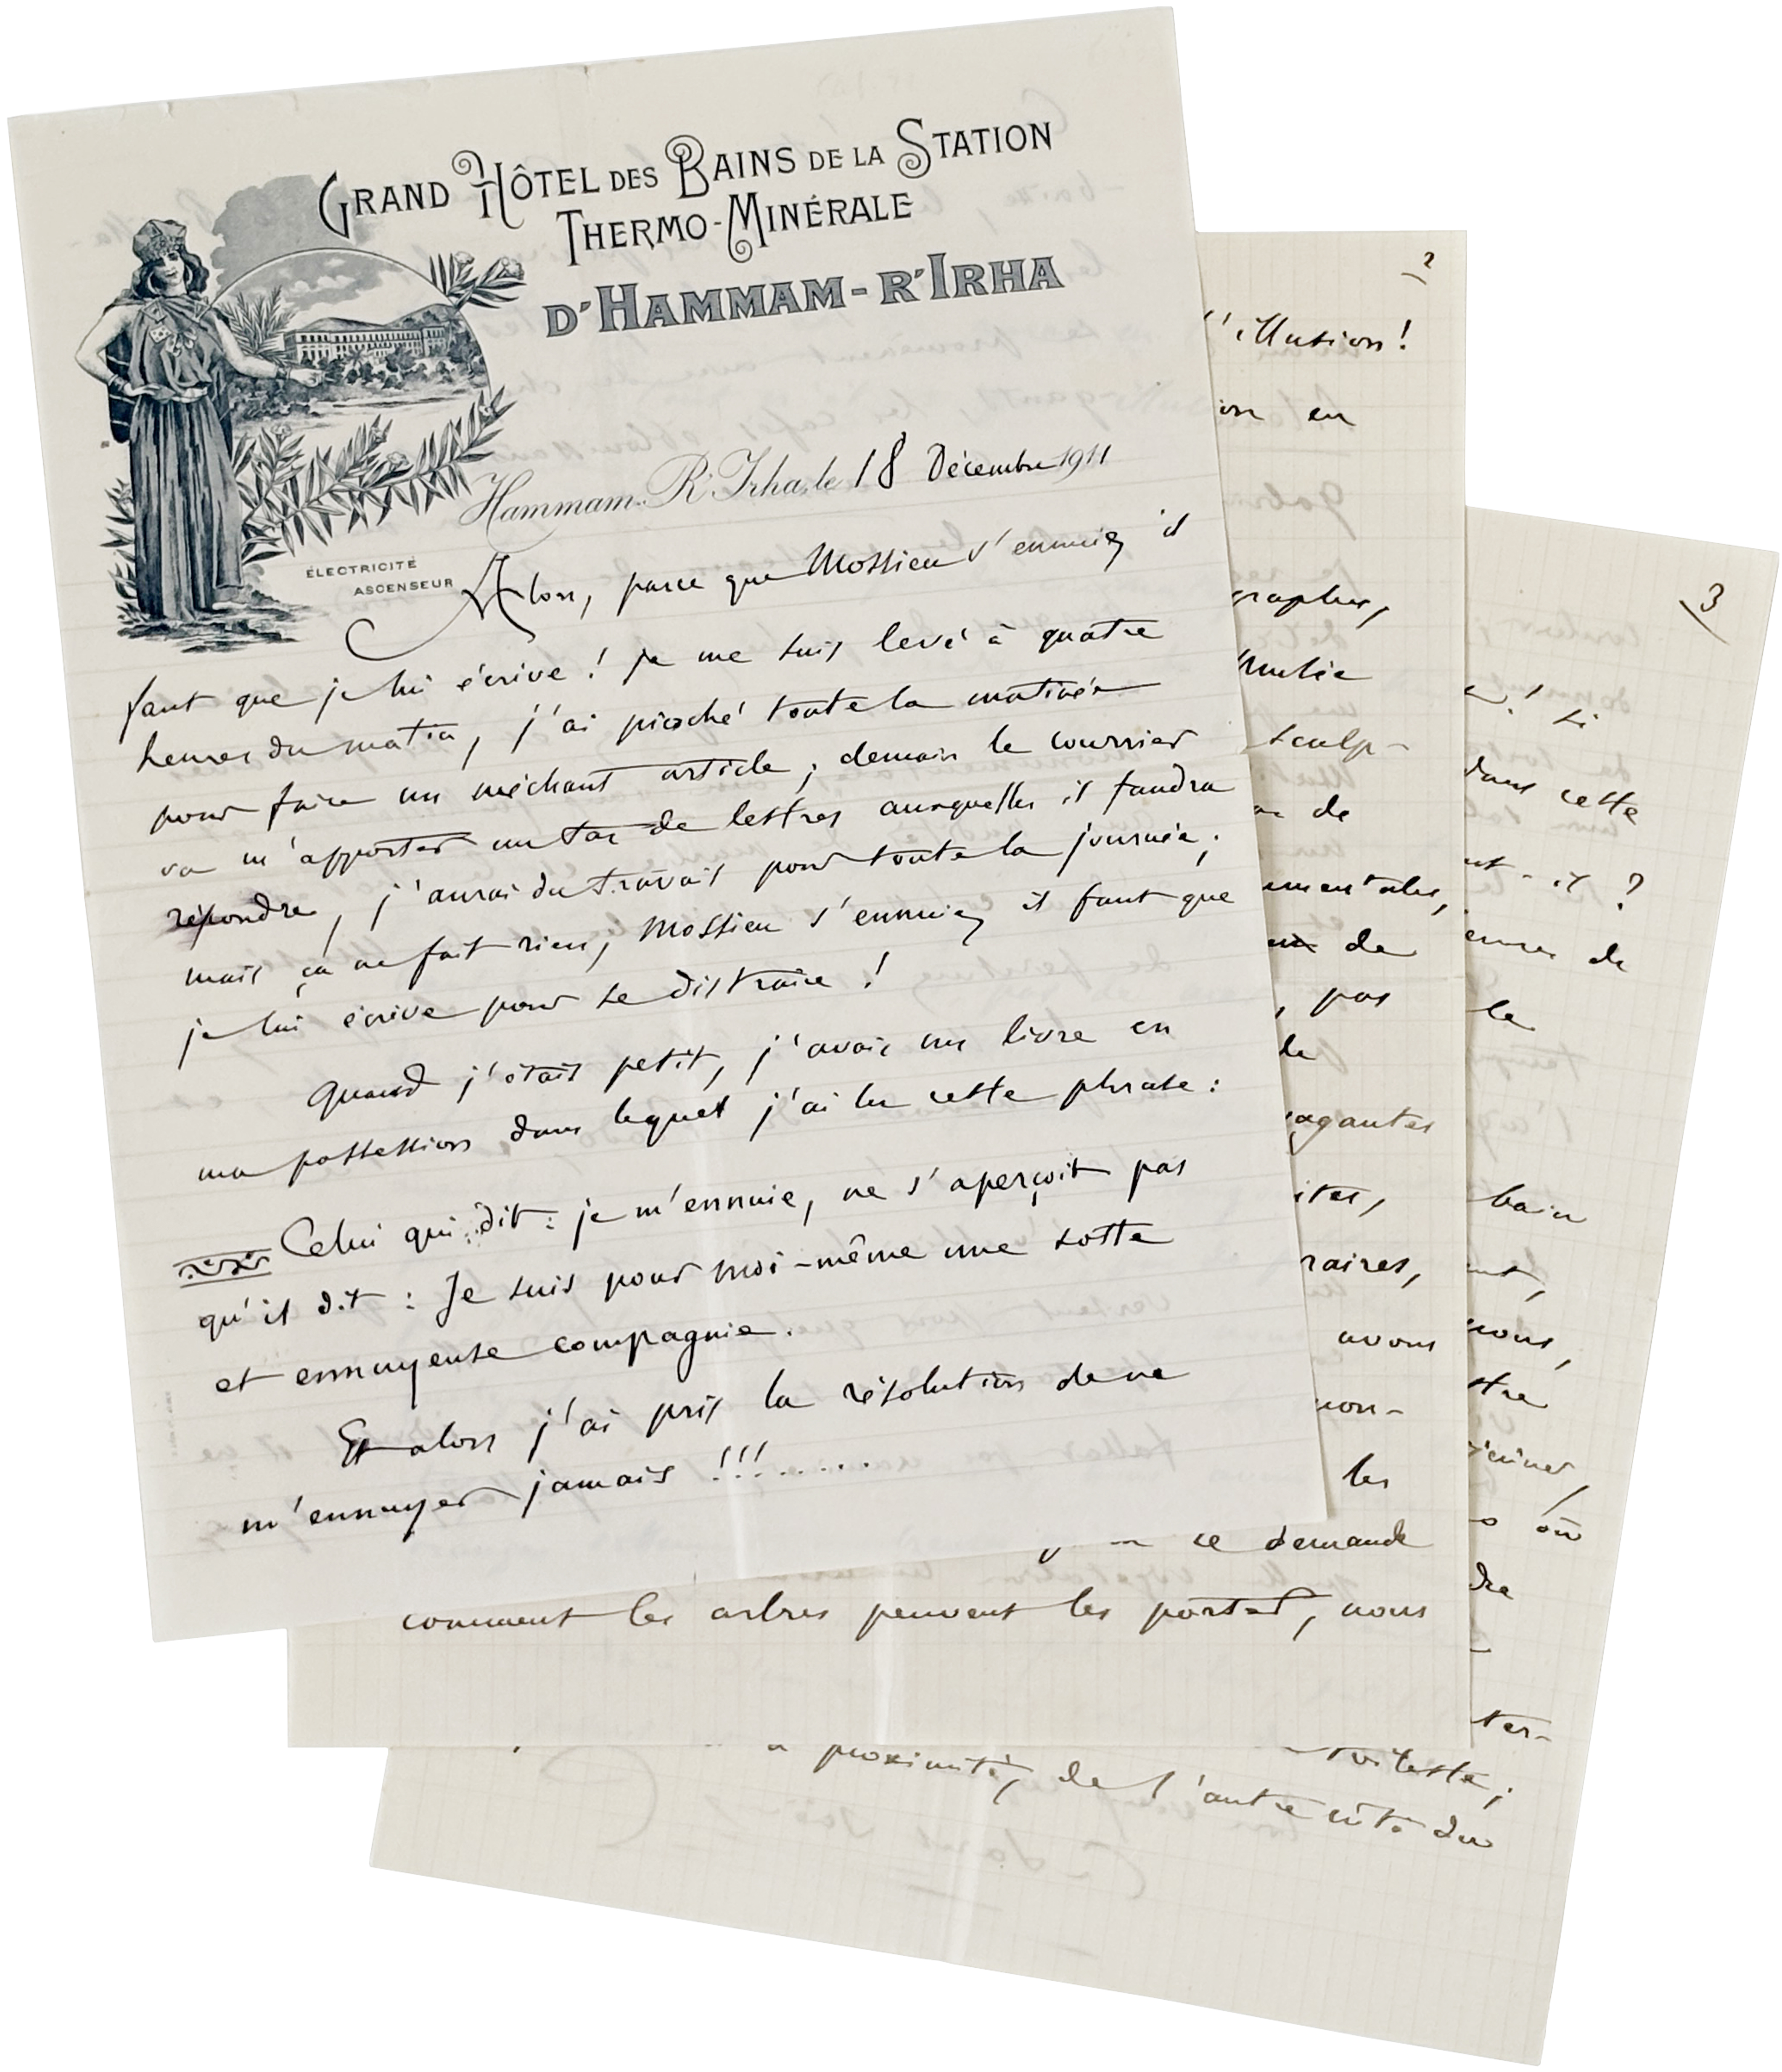 GRAND HÔTEL DES BAINS DE LA STATION
THERMO-MINÉRALE
D'HAMMAM-R'IRHA
Hammam-R'Irha, le 18 Décembre 1911
ÉLECTRICITÉ
ASCENSEUR
Alors, parce que Mossieu s'ennuie, il
faut que je lui écrive ! Je me suis levé à quatre
heures du matin, j'ai pioché toute la matinée
pour faire un méchant article ; demain le courrier
va m'apporter un tas de lettres auxquelles il faudra
répondre, j'aurai du travail pour toute la journée ;
mais ça ne fait rien, Mossieu s'ennuie, il faut que
je lui écrive pour se distraire !
Quand j'étais petit, j'avais un livre en
ma possession dans lequel j'ai lu cette phrase :
Celui qui dit : je m'ennuie, ne s'aperçoit pas
qu'il dit : Je suis pour moi-même une sotte
et ennuyeuse compagnie.
Et alors j'ai pris la résolution de ne
m'ennuyer jamais !!!........
2
l'illusion !
en
graphes,
sculp-
de
umentales,
de
, pas
la
vagantes
ites,
raires,
avons
non-
les
ce demande
comment les arbres peuvent les porter, nous
3
! si
dans cette
nt-il ?
de
le
bain
nt,
nous,
stre
jeûner,
où
dre
ter-
vitesse ;
à proximité, de l'autre côté du